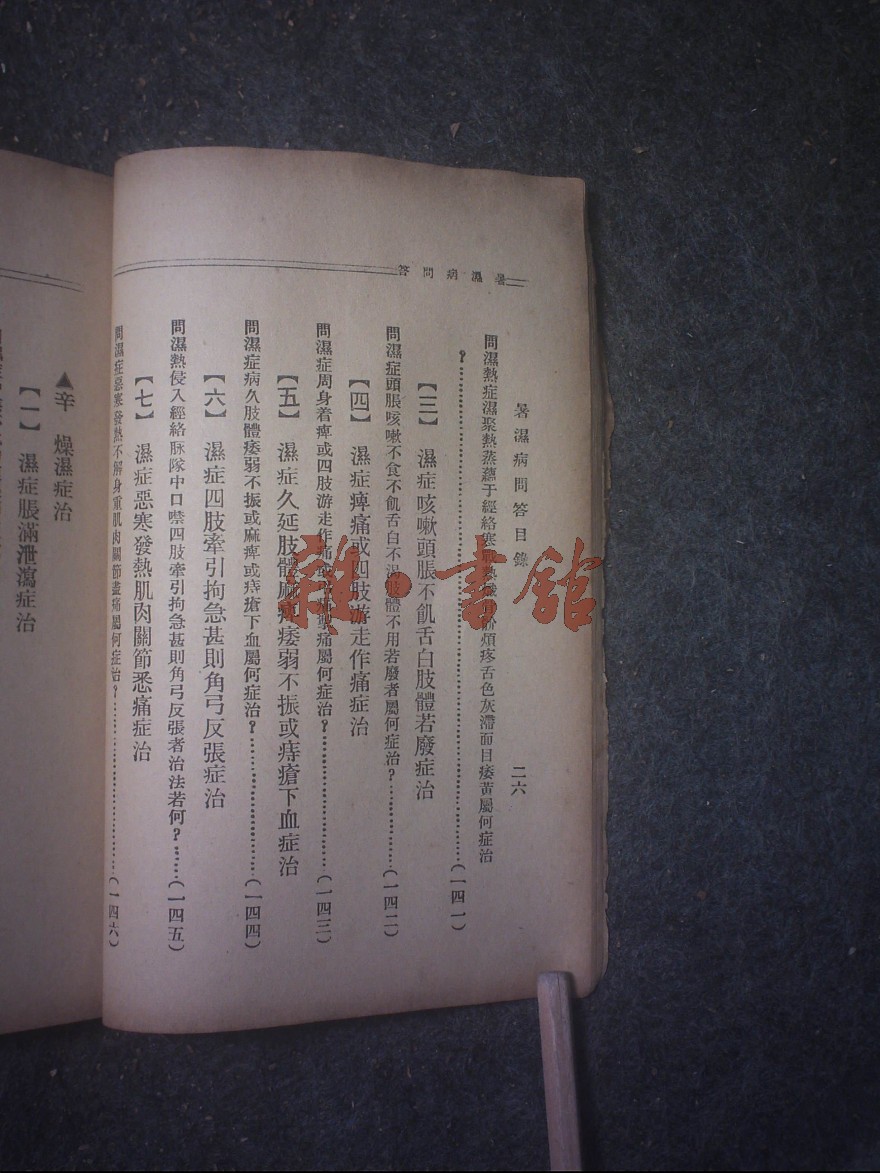 暑濕病問答
暑濕病問答目錄
二六
問濕熱症濕聚熱蒸蘊于經絡寒戰熱 煩疼舌色灰滯面目痿黃屬何症治
?……(一四一)
【三】 濕症咳嗽頭脹不飢舌白肢體若廢症治
問濕症頭脹咳嗽不食不飢舌白不渴肢體不用若廢者屬何症治?……(一四二)
【四】 濕症痺痛或四肢游走作痛症治
問濕症周身着痺或四肢游走作痛或 痛屬何症治?……(一四三)
【五】 濕症久延肢體麻痺痿弱不振或痔瘡下血症治
問濕症病久肢體痿弱不振或麻痺或痔瘡下血屬何症治?……(一四四)
【六】 濕症四肢牽引拘急甚則角弓反張症治
問濕熱侵入經絡脉隧中口噤四肢牽引拘急甚則角弓反張者治法若何?……(一四五)
【七】 濕症惡寒發熱肌肉關節悉痛症治
問濕症惡寒發熱不解身重肌肉關節盡痛屬何症治?……(一四六)
▲辛 燥濕症治
【一】 濕症脹滿泄瀉症治
雜·書館